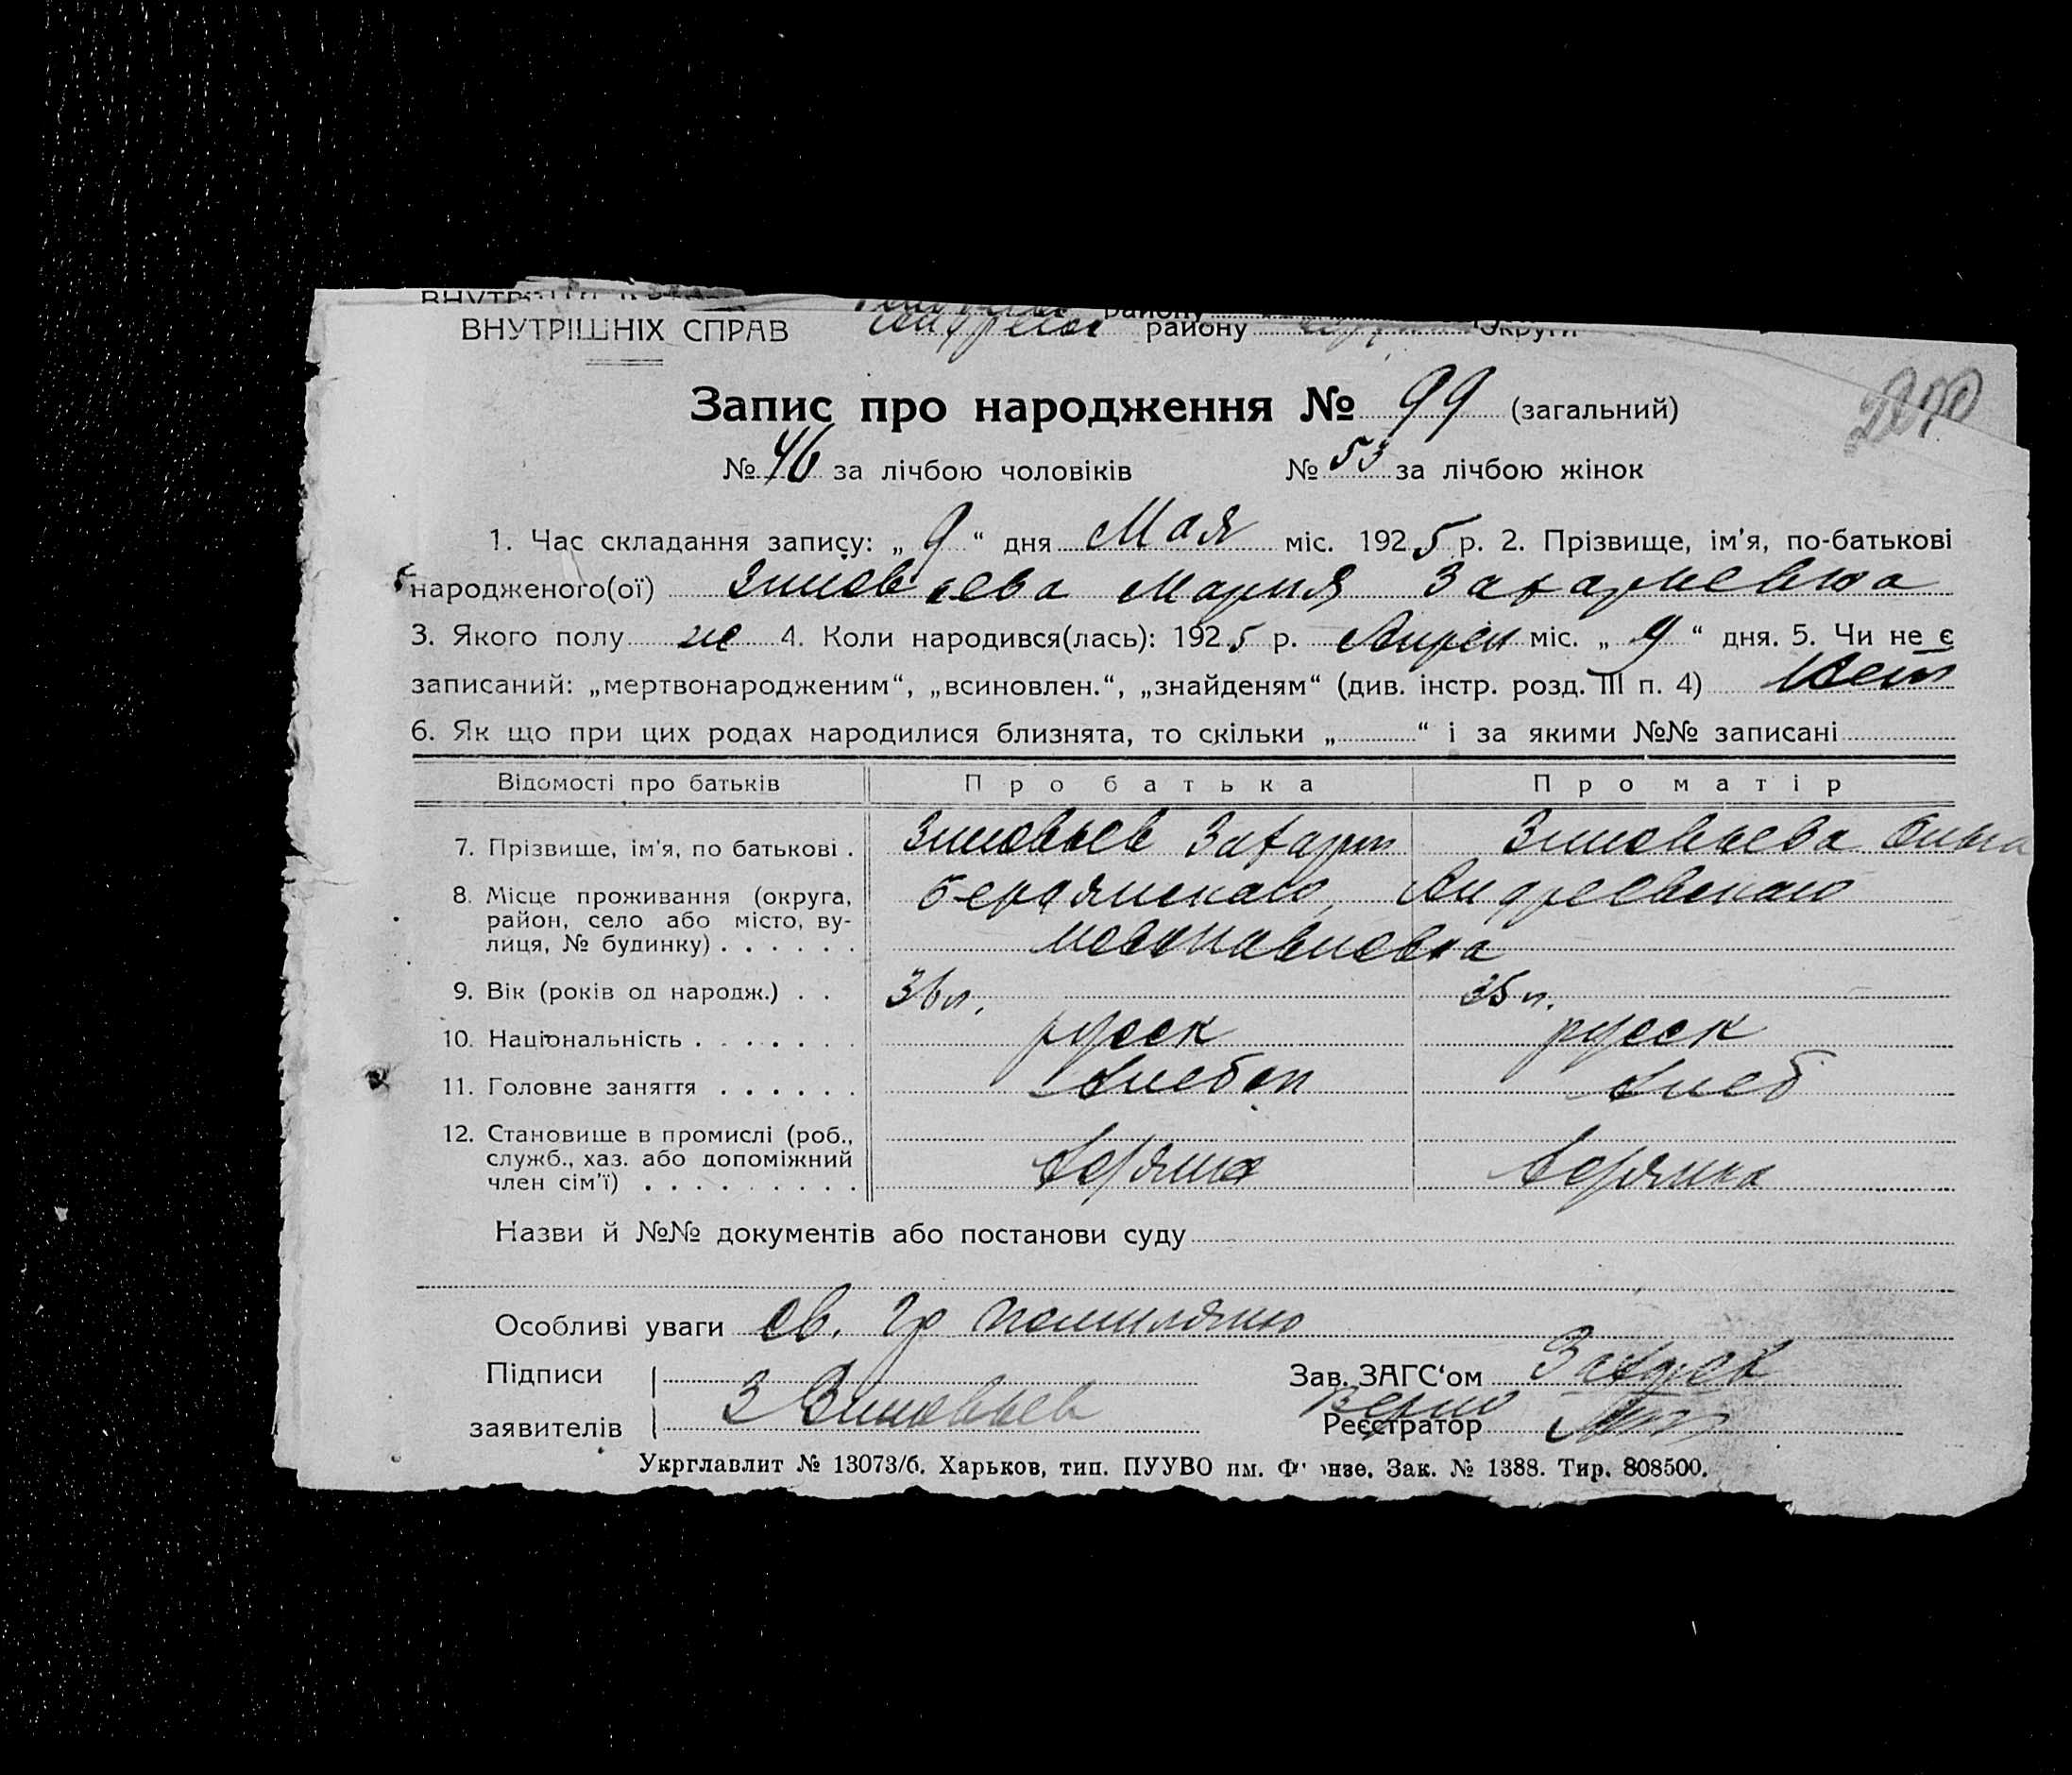 ВНУТРІШНІХ СПРАВ району Округи
Запис про народження № 99 (загальний)
№ 46 за лічбою чоловіків № 53 за лічбою жінок
1. Час складання запису: „ 9 “ дня Мая міс. 1925 р. 2. Прізвище, ім’я, по-батькові
народженого(ої) Зиновьева Мария Захарьевна
3. Якого полу ж 4. Коли народився(лась): 1925 р. Апрел міс. „ 9 “ дня. 5. Чи не є
записаний: „мертвонародженим“, „всиновлен.“, „знайденям“ (див. інстр. розд. III п. 4) Нет
6. Як що при цих родах народилися близнята, то скільки „ “ і за якими №№ записані
Відомості про батьків Про батька Про матір
7. Прізвище, ім’я, по батькові . Зиновьев Захарий Зиновьева
8. Місце проживання (округа, Бердянскаго, Андреевскаго
район, село або місто, ву-
лиця, № будинку) . . . . . .
9. Вік (років од народж.) . . 36 л. 35 л.
10. Національність . . . . . . . русск русск
11. Головне заняття . . . . . . Хлебоп Хлеб
12. Становище в промислі (роб.,
служб., хаз. або допоміжний
член сім’ї) . . . . . . . . .
Назви й №№ документів або постанови суду
Особливі уваги
Підписи Зав. ЗАГС‘ом
заявителів З Зиновьев Верно Реєстратор
Укрглавлит № 13073/б. Харьков, тип. ПУУВО им. Фрунзе. Зак. № 1388. Тир. 808500.